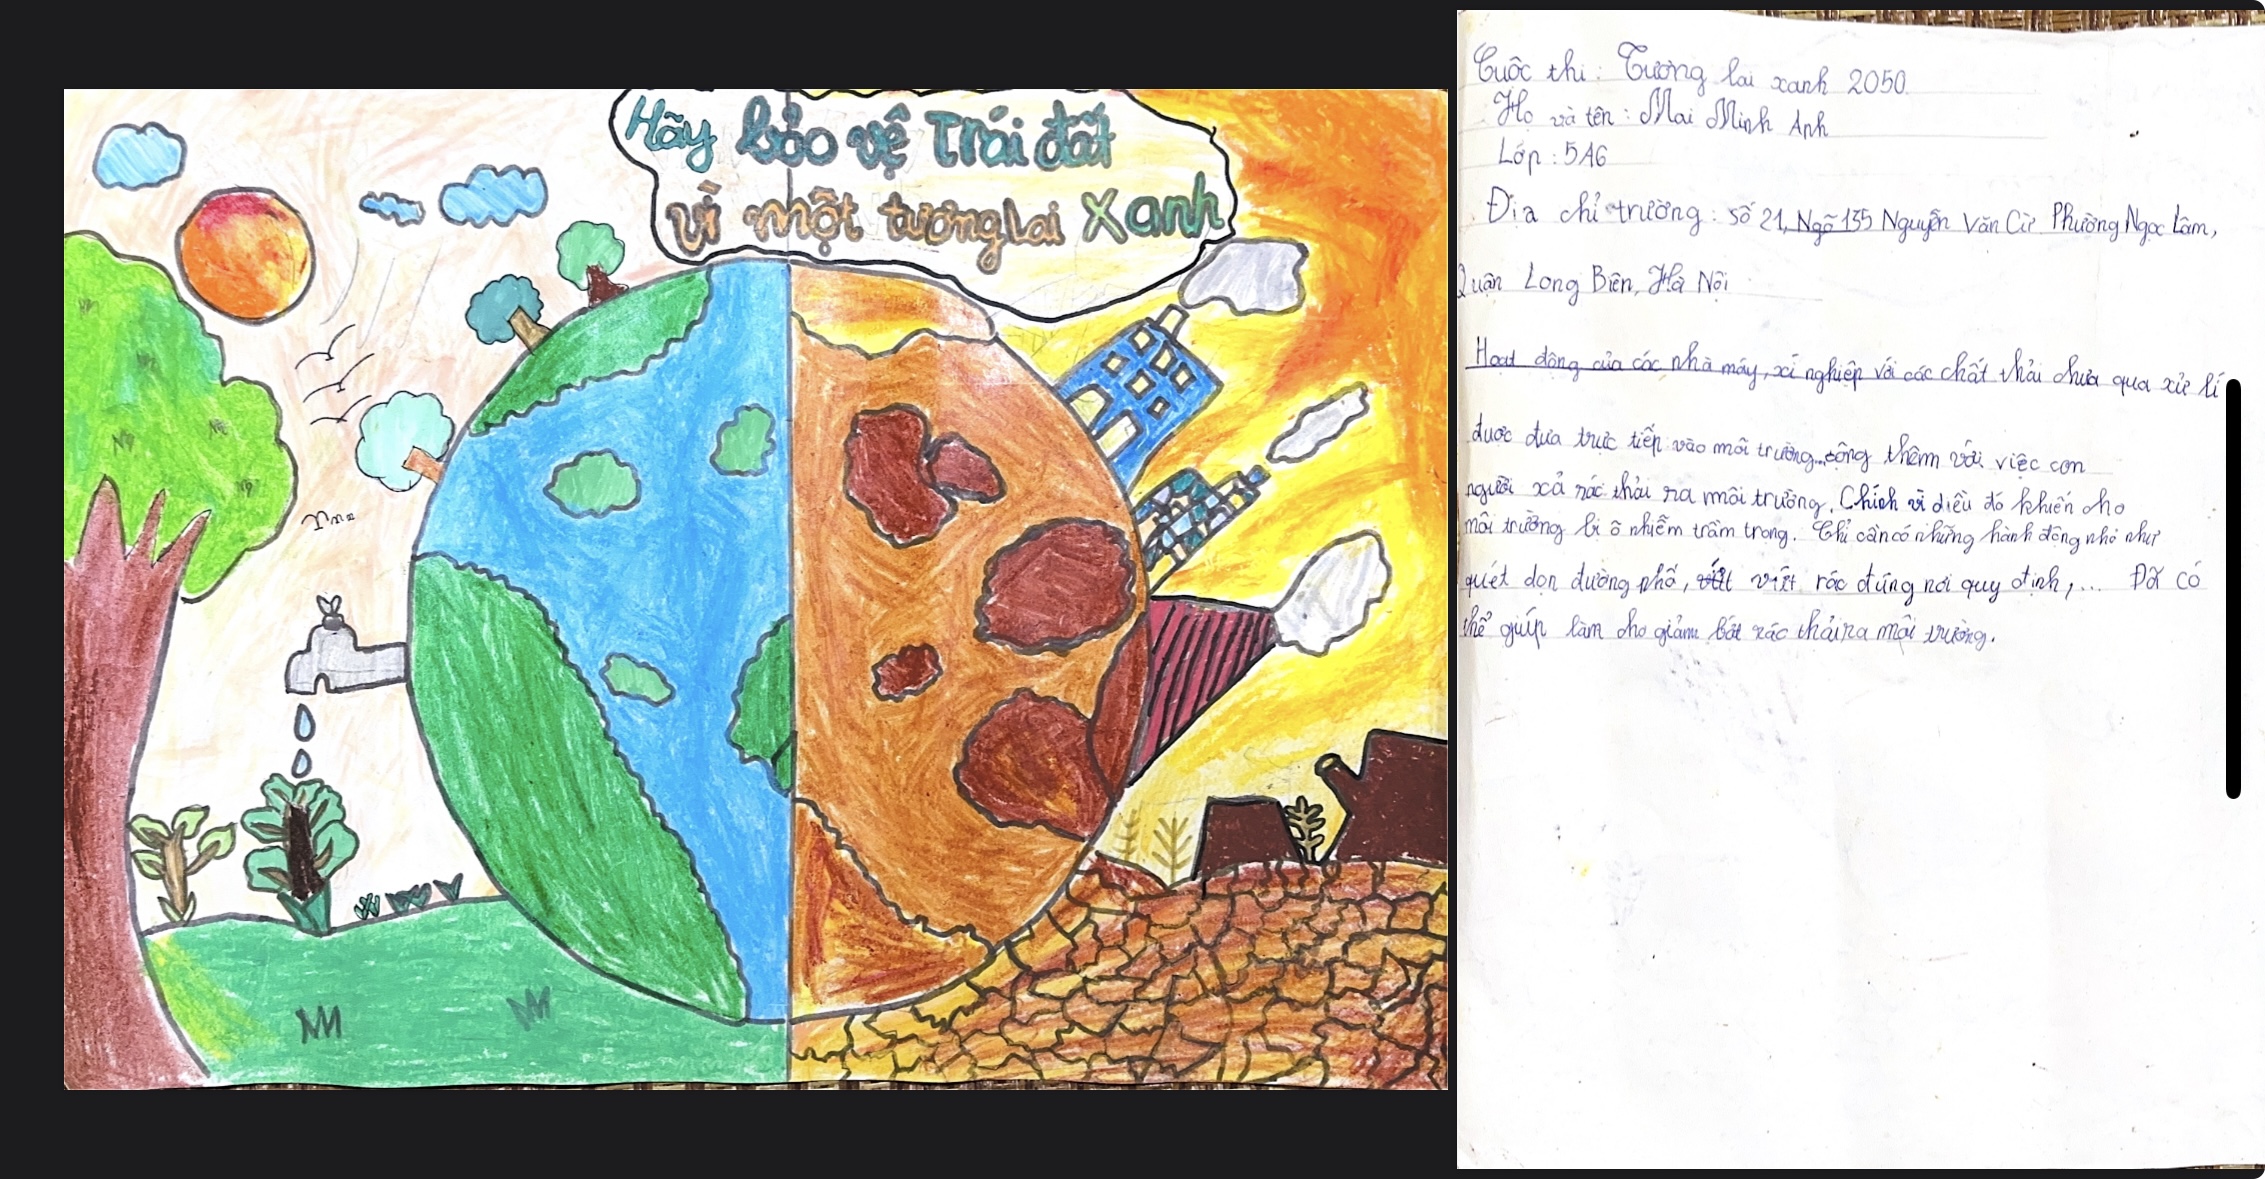 Hãy bảo vệ Trái đất
vì một tương lai Xanh
Cuộc thi: Tương lai xanh 2050.
Họ và tên: Mai Minh Anh
Lớp: 5A6
Địa chỉ trường: số 21, Ngõ 135 Nguyễn Văn Cừ Phường Ngọc Lâm,
Quận Long Biên, Hà Nội
Hoạt động của các nhà máy, xí nghiệp với các chất thải chưa qua xử lí
được đưa trực tiếp vào môi trường... cộng thêm với việc con
người xả rác thải ra môi trường. Chính vì điều đó khiến cho
môi trường bị ô nhiễm trầm trọng. Chỉ cần có những hành động nhỏ như
quét dọn đường phố, viết rác đúng nơi quy định,... Đã có
thể giúp làm cho giảm bớt rác thải ra môi trường.